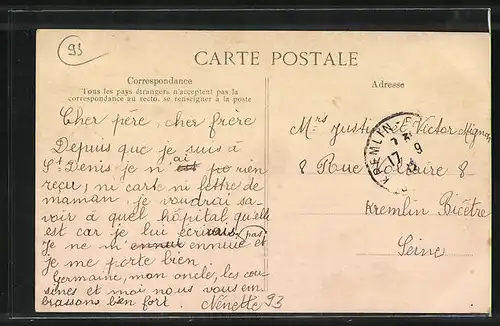 93
CARTE POSTALE
Correspondance
Tous les pays étrangers n'acceptent pas la
correspondance au recto, se renseigner à la poste
Adresse
Cher père, cher frère
Depuis que je suis à
St Denis je n'ai rien
reçu, ni carte ni lettre de
maman, je voudrai sa-
voir à quel hôpital qu'elle
est car je lui écrirais.
Je ne m'ennuie pas et
je me porte bien.
Germaine, mon oncle, les cou-
sines et moi nous vous em-
brassons bien fort. Nénette 93
Mrs Justin et Victor Mignon
8 Rue Voltaire 8
Kremlin Bicêtre
Seine
KREMLIN-
17 - 9